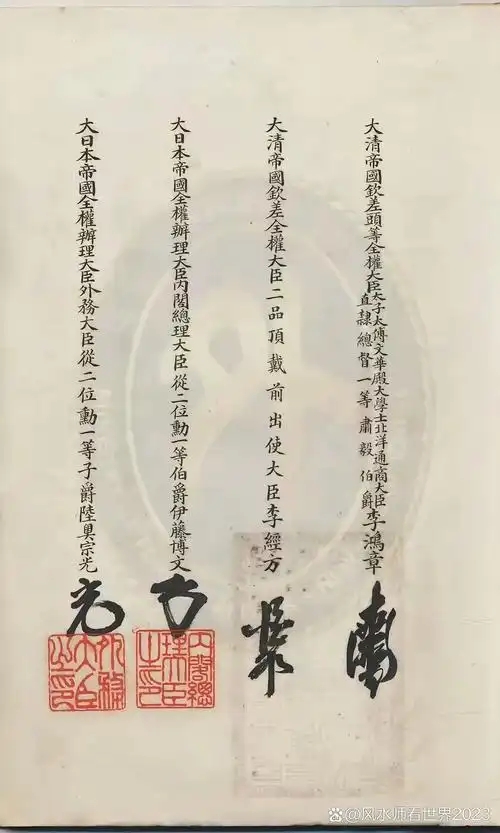 大清帝國欽差頭等全權大臣太子太傅文華殿大學士北洋通商大臣直隸總督一等肅毅伯爵李鴻章
大清帝國欽差全權大臣二品頂戴前出使大臣李經方
大日本帝國全權辦理大臣內閣總理大臣從二位勳一等伯爵伊藤博文
大日本帝國全權辦理大臣外務大臣從二位勳一等子爵陸奧宗光
內閣總理大臣之印
外務大臣之印
@风水师看世界2023